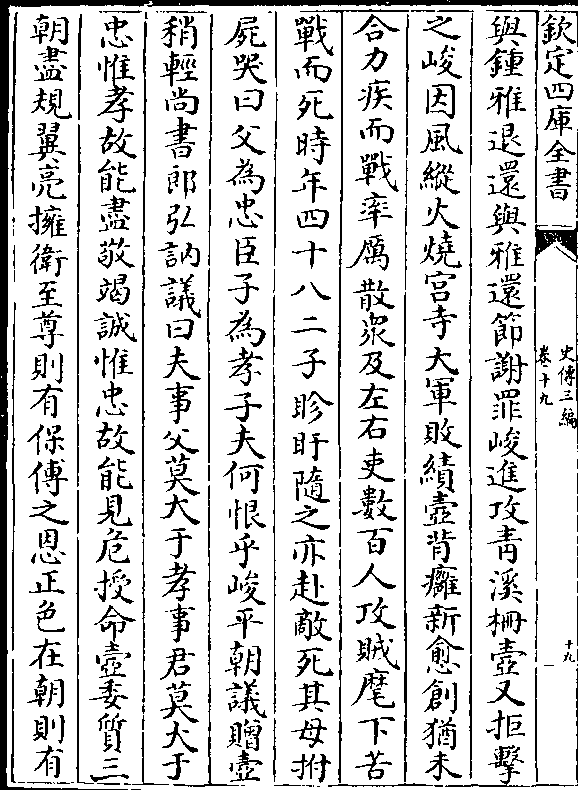 欽定四庫全書
史傳三編
卷十九
十九
與鍾雅退還與雅還節謝罪峻進攻青溪柵壼又拒擊
之峻因風縱火燒宮寺大軍敗績壼背癰新愈創猶未
合力疾而戰率厲散衆及左右吏數百人攻賊麾下苦
戰而死時年四十八二子眕盱隨之亦赴敵死其母拊
屍哭曰父為忠臣子為孝子夫何恨乎峻平朝議贈壼
稍輕尚書郎弘訥議曰夫事父莫大于孝事君莫大于
忠惟孝故能盡敬竭誠惟忠故能見危授命壼委質三
朝盡規翼亮擁衛至尊則有保傅之恩正色在朝則有